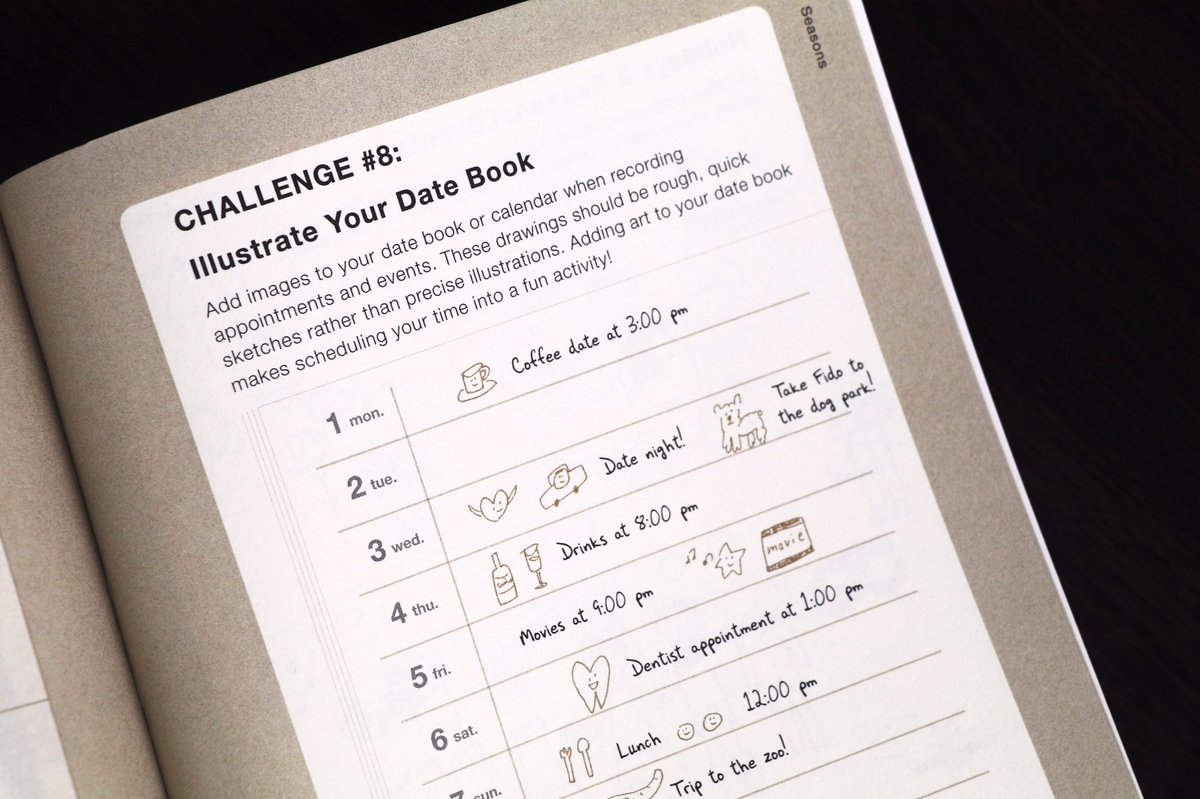 Seasons
CHALLENGE #8:
Illustrate Your Date Book
Add images to your date book or calendar when recording
appointments and events. These drawings should be rough, quick
sketches rather than precise illustrations. Adding art to your date book
makes scheduling your time into a fun activity!
1 mon. Coffee date at 3:00 pm
2 tue.
Take Fido to
the dog park!
3 wed. Date night!
4 thu. Drinks at 8:00 pm
5 fri. Movies at 9:00 pm movie
6 sat. Dentist appointment at 1:00 pm
7 sun. Lunch 12:00 pm
Trip to the zoo!